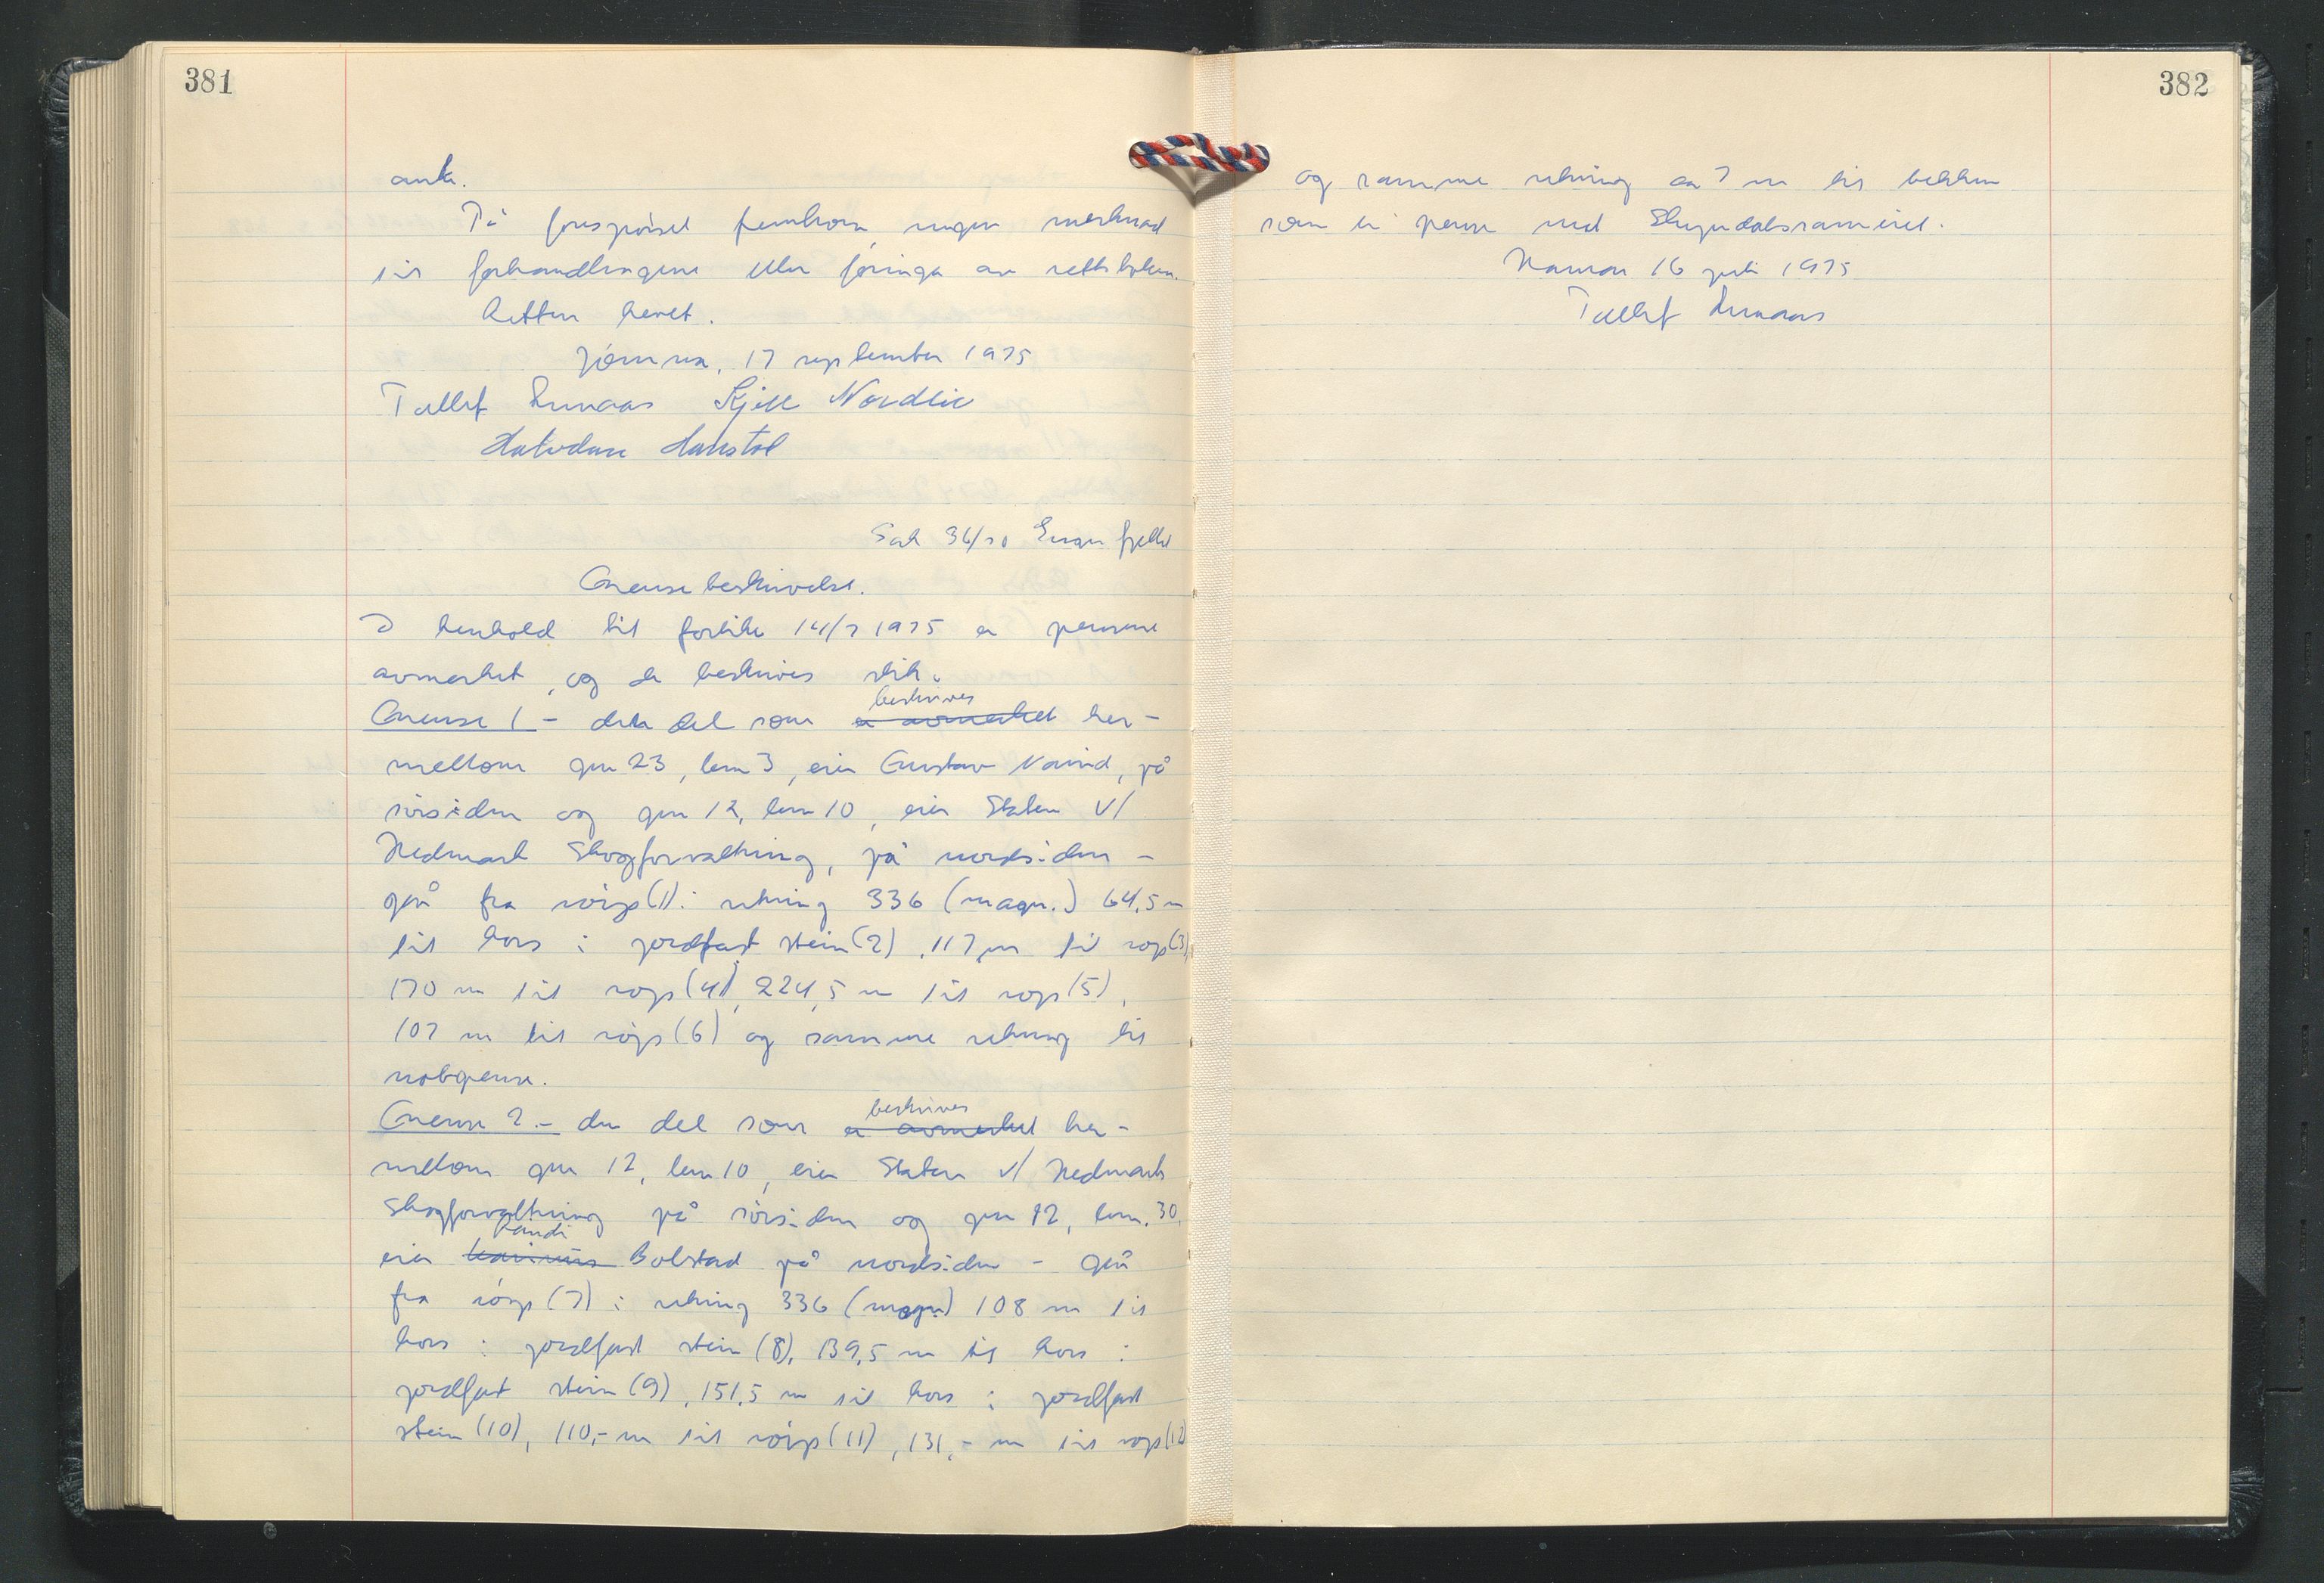 381
anke.
På forespørsel fremkom ingen merknad
til forhandlingene eller føringa av rettsboken.
Retten hevet.
Jømna, 17 september 1975
Tallef Kjell Nordli
Halvdan
Sak 36/70 fjellet
Grensebeskrivelse.
I henhold til forlik 14/7 1975 er grensene
avmerket, og de beskrives slik:
Grense 1 - den del som beskrives er avmerket her -
mellom gnr 23, bnr 3, eier Gustav, på
sørsiden og gnr 12, bnr 10, eier Staten v/
Hedmark Skogforvaltning, på nordsiden -
går fra røys (1) i retning 336 (magn.) 64,5 m
til kors i jordfast stein (2), 117 m til røys (3),
170 m til røys (4), 224,5 m til røys (5),
107 m til røys (6) og samme retning til
nabogrense.
Grense 2.- den del som beskrives er avmerket her -
mellom gnr 12, bnr 10, eier Staten v/ Hedmark
Skogforvaltning på sørsiden og gnr 12, bnr. 30,
eier Randi Bolstad på nordsiden - går
fra røys (7) i retning 336 (magn) 108 m til
kors i jordfast stein (8), 139,5 m til kors i
jordfast stein (9), 151,5 m til kors i jordfast
stein (10), 110,- m til røys (11), 131,- m til røys (12)
382
og samme retning ca 7 m til bekken
som er grense med Skyndalssameiet.
Hamar 16 juli 1975
Tallef